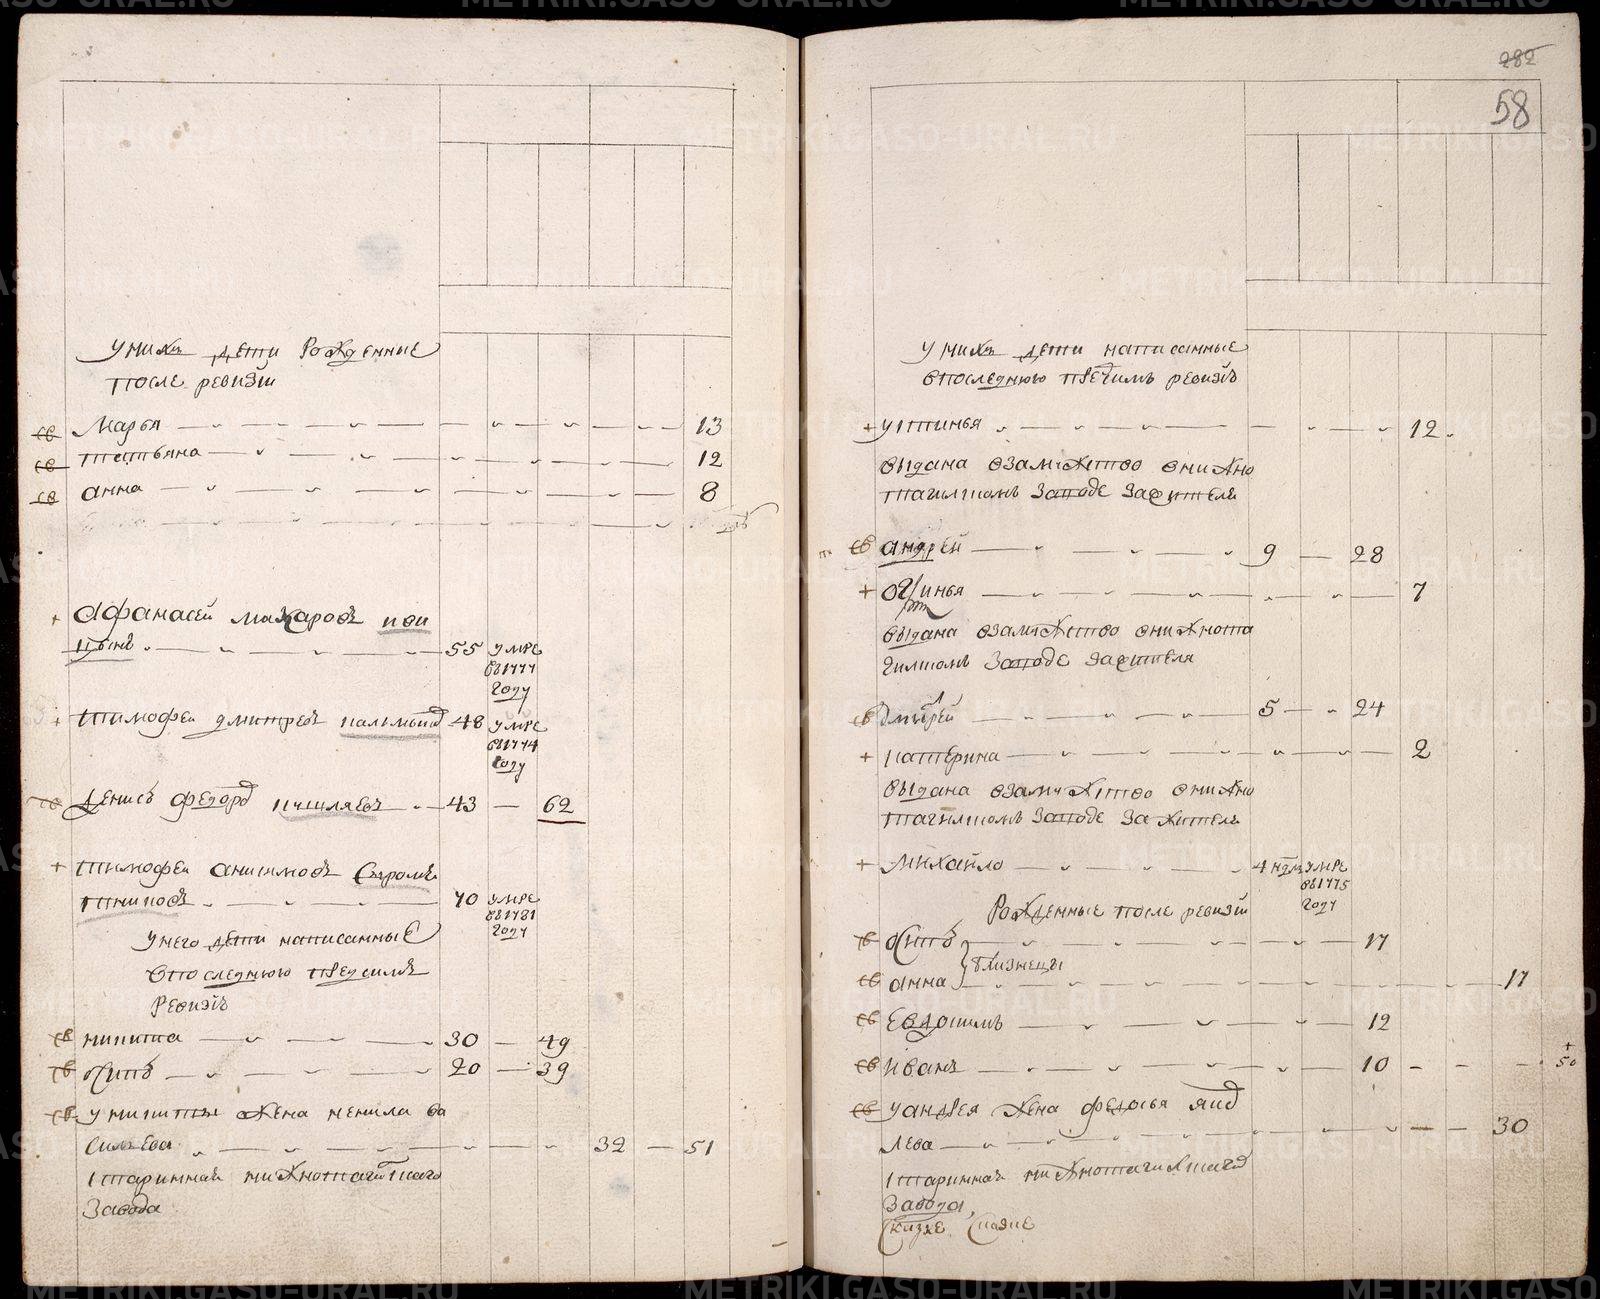 У них дети рожденные
после ревизiи
св Марья 13
св татьяна 12
св анна 8
+ Афанасей Макаровъ
55 умре
въ 1777
году
+ тимофеи дмитревъ 48 умре
въ 1774
году
денисъ федоров 43 62
+ тимофеи анисимовъ
70 умре
въ 1781
году
У него дети написанные
впоследнюю пред симъ
ревизiю
св никита 30 49
св осипъ 20 39
св У никиты жена ненила ва
сильева 32 51
старинная нижнотагилского
завода
282
58
У них дети написанные
впоследнюю пред симъ ревизiю
+ устинья 12
выдана взамужство внижно
тагилскомъ заводе за жителя
св андрей 9 28
+ 7
выдана взамужство внижнота
гилскомъ заводе зажителя
св Дмитрей 5 24
+ катерина 2
выдана взамужство внижно
тагилскомъ заводе за жителя
+ Михайло 4 недель умре
въ 1775
году
Рожденные после ревизiи
св осипъ 17
близнецы
св анна 17
св Евдокимъ 12
св Иванъ 10
+
50
св У андрея жена федосья яков
лева 30
старинная нижнотагилского
завода
METRIKI.GASO-URAL.RU